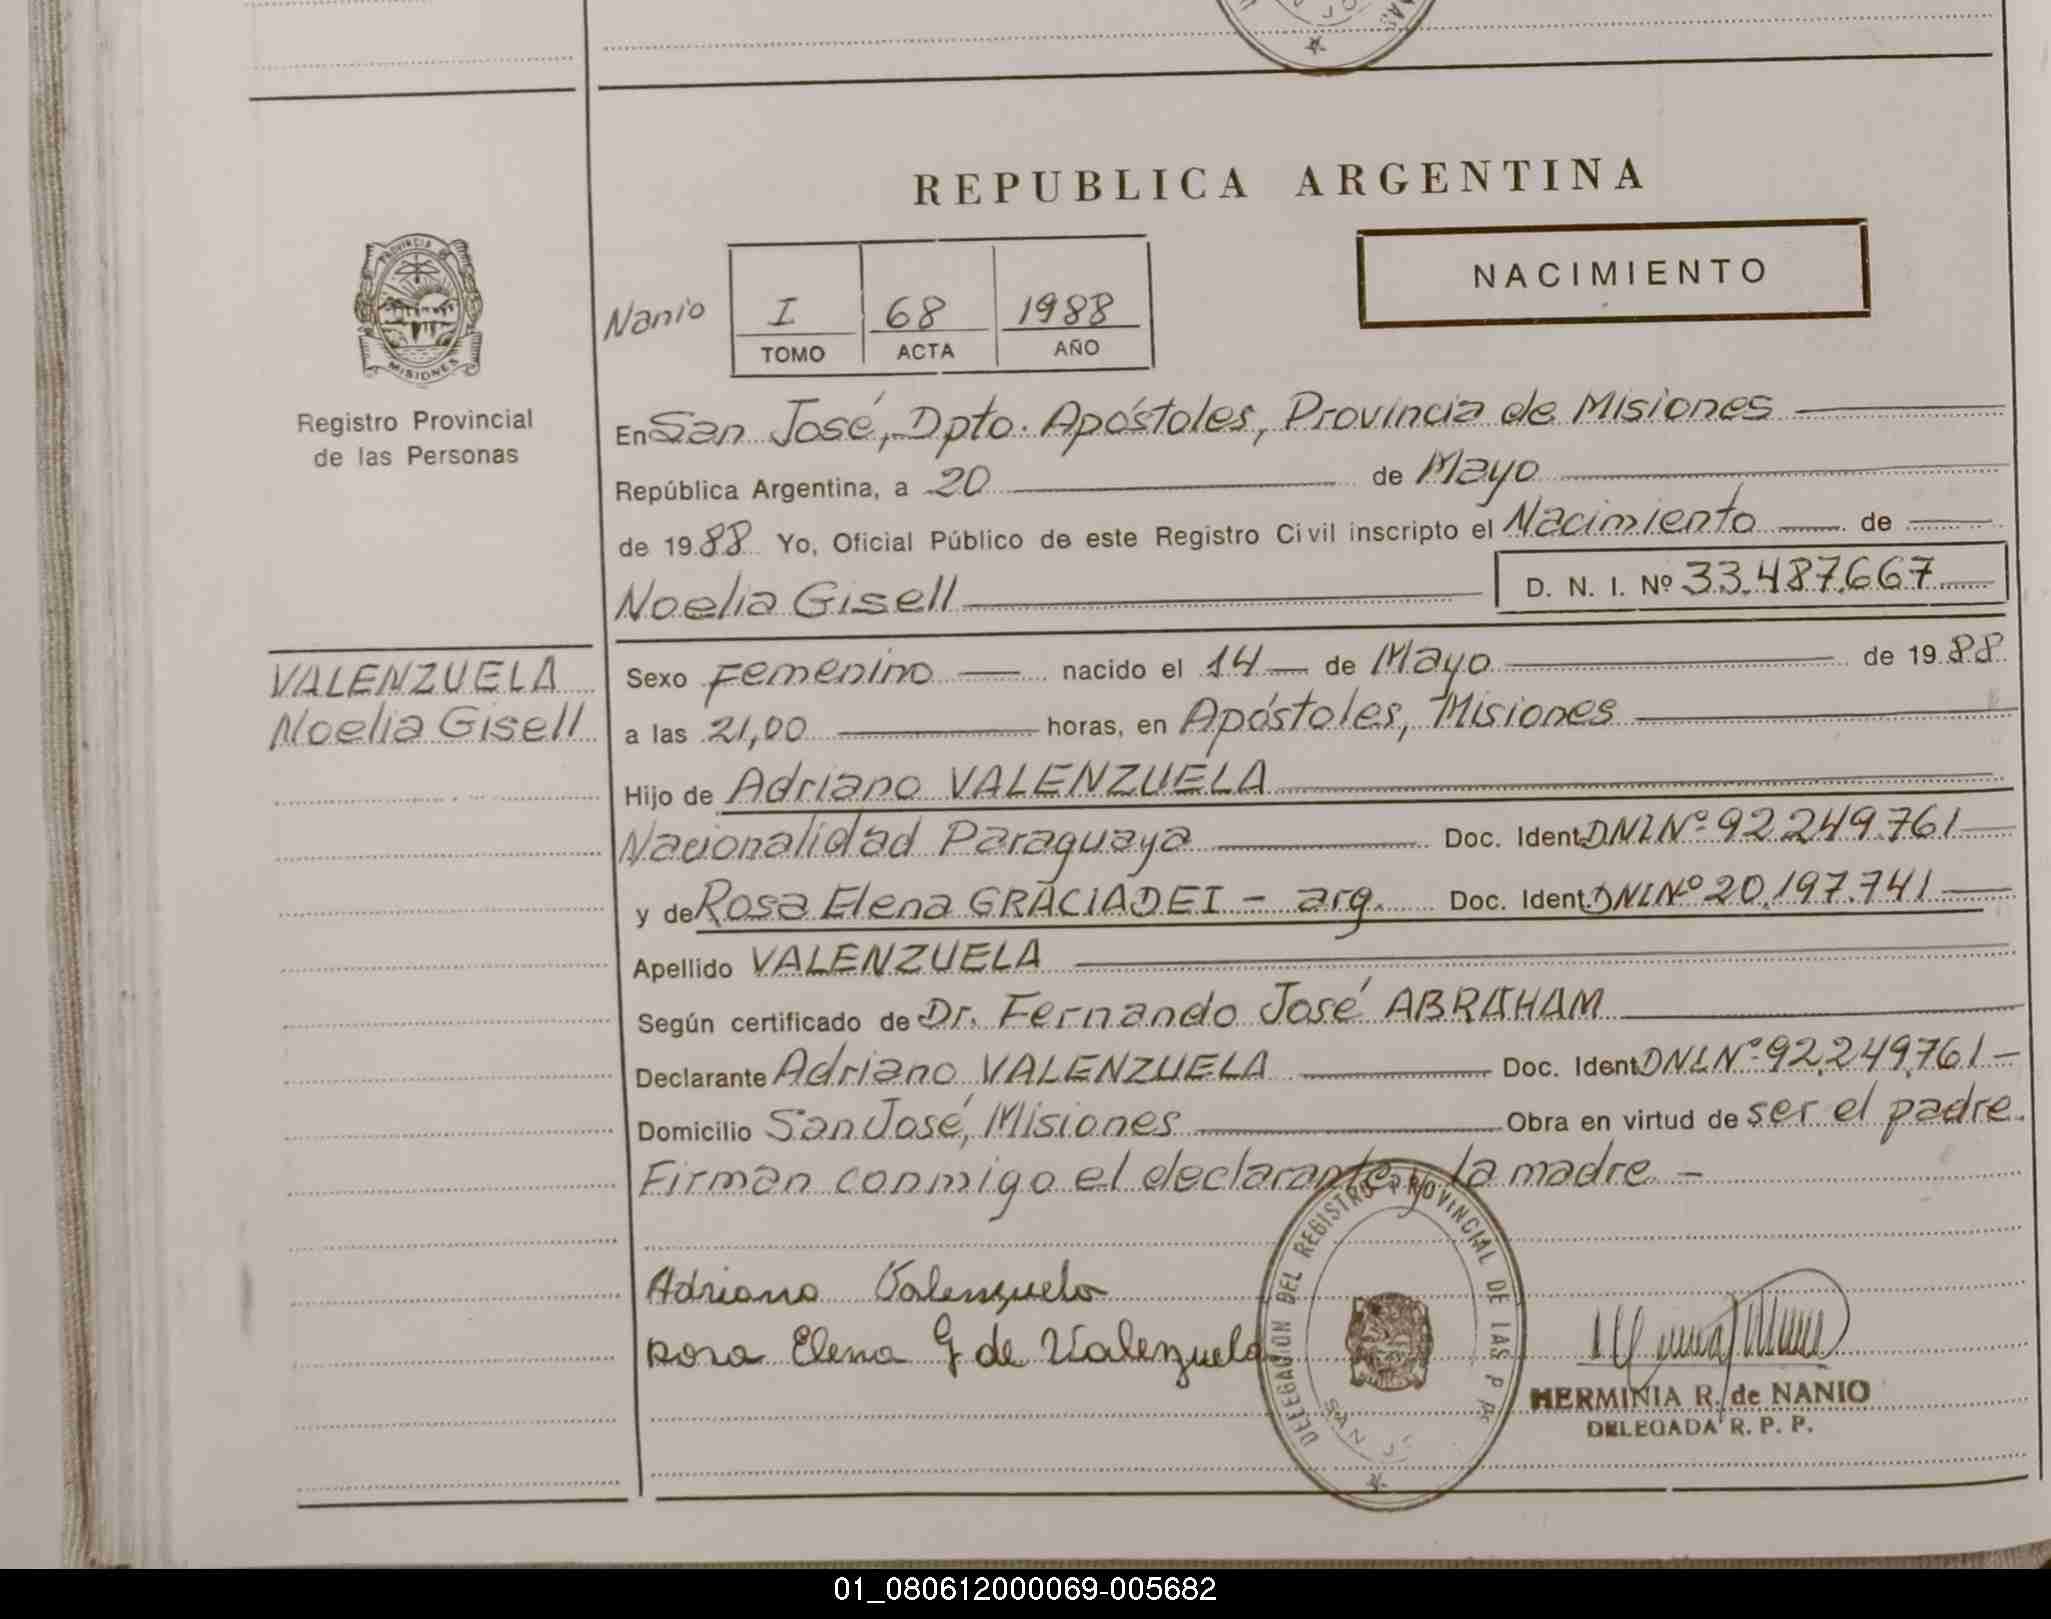 REPUBLICA ARGENTINA
NACIMIENTO
PROVINCIA
MISIONES
Registro Provincial
de las Personas
Nanio
I 68 1988
TOMO ACTA AÑO
En San José, Dpto. Apóstoles, Provincia de Misiones
República Argentina, a 20 de Mayo
de 1988 Yo, Oficial Público de este Registro Civil inscripto el Nacimiento de
Noelia Gisell D. N. I. Nº 33.487.667
VALENZUELA
Noelia Gisell
Sexo Femenino nacido el 14 de Mayo de 1988
a las 21,00 horas, en Apóstoles, Misiones
Hijo de Adriano VALENZUELA
Nacionalidad Paraguaya Doc. Ident. DNI.Nº 92.249.761
y de Rosa Elena GRACIADEI - arg. Doc. Ident. DNI.Nº 20.197.741
Apellido VALENZUELA
Según certificado de Dr. Fernando José ABRAHAM
Declarante Adriano VALENZUELA Doc. Ident. DNI.Nº 92.249.761
Domicilio San José, Misiones Obra en virtud de ser el padre.
Firman conmigo el declarante y la madre. -
Adriano Valenzuela
Rosa Elena G de Valenzuela
DELEGACIÓN DEL REGISTRO PROVINCIAL DE LAS
SAN
HERMINIA R. de NANIO
DELEGADA R. P. P.
01_080612000069-005682